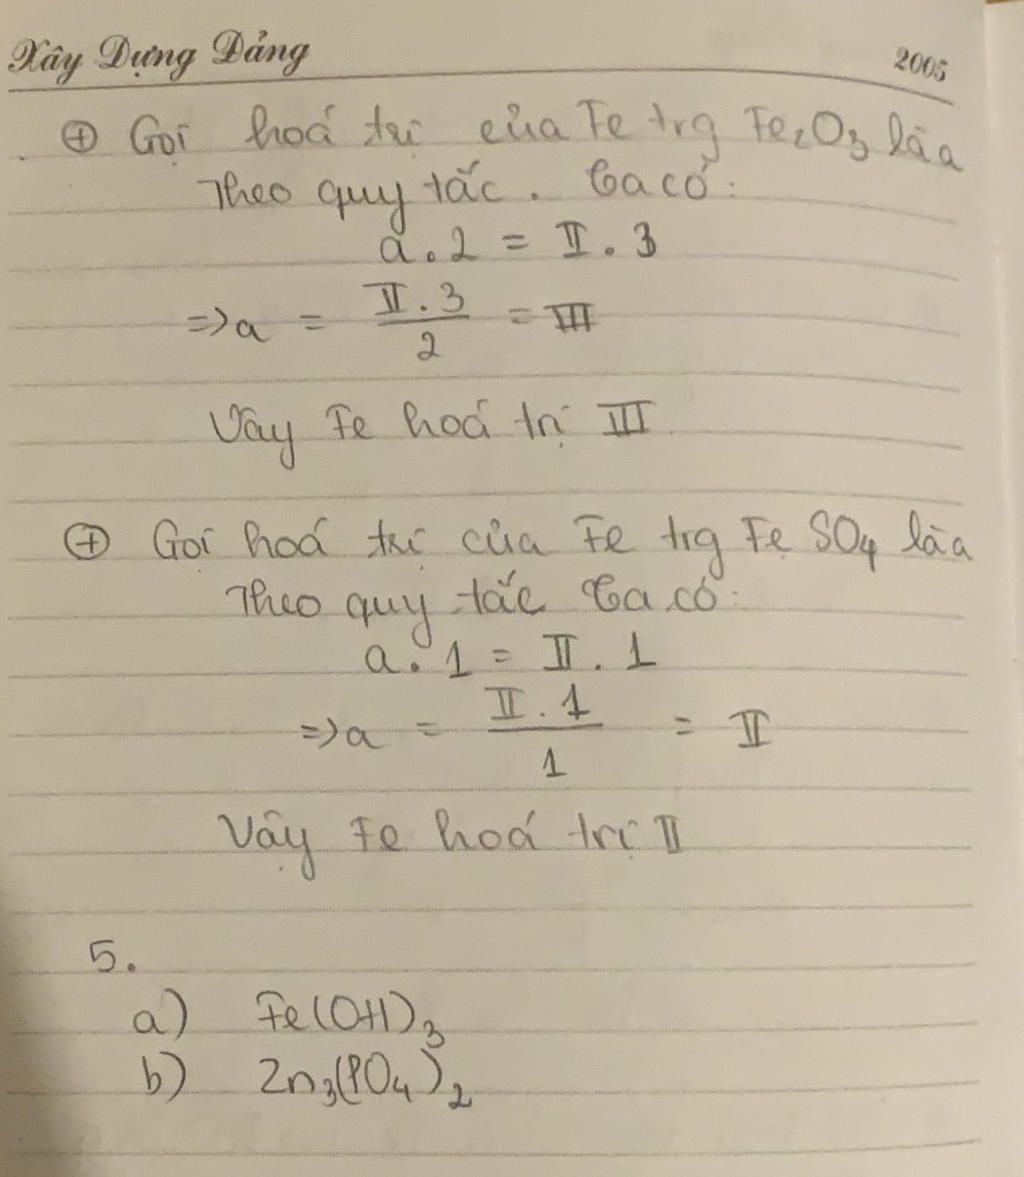 Xây Dựng Đảng 2005
⊕ Gọi hoá trị của Fe trg Fe₂O₃ là a
Theo quy tắc. Ta có:
a . 2 = II . 3
=> a = II . 3 / 2 = III
Vậy Fe hoá trị III
⊕ Gọi hoá trị của Fe trg FeSO₄ là a
Theo quy tắc Ta có:
a . 1 = II . 1
=> a = II . 1 / 1 = II
Vậy Fe hoá trị II
5.
a) Fe(OH)₃
b) Zn₃(PO₄)₂